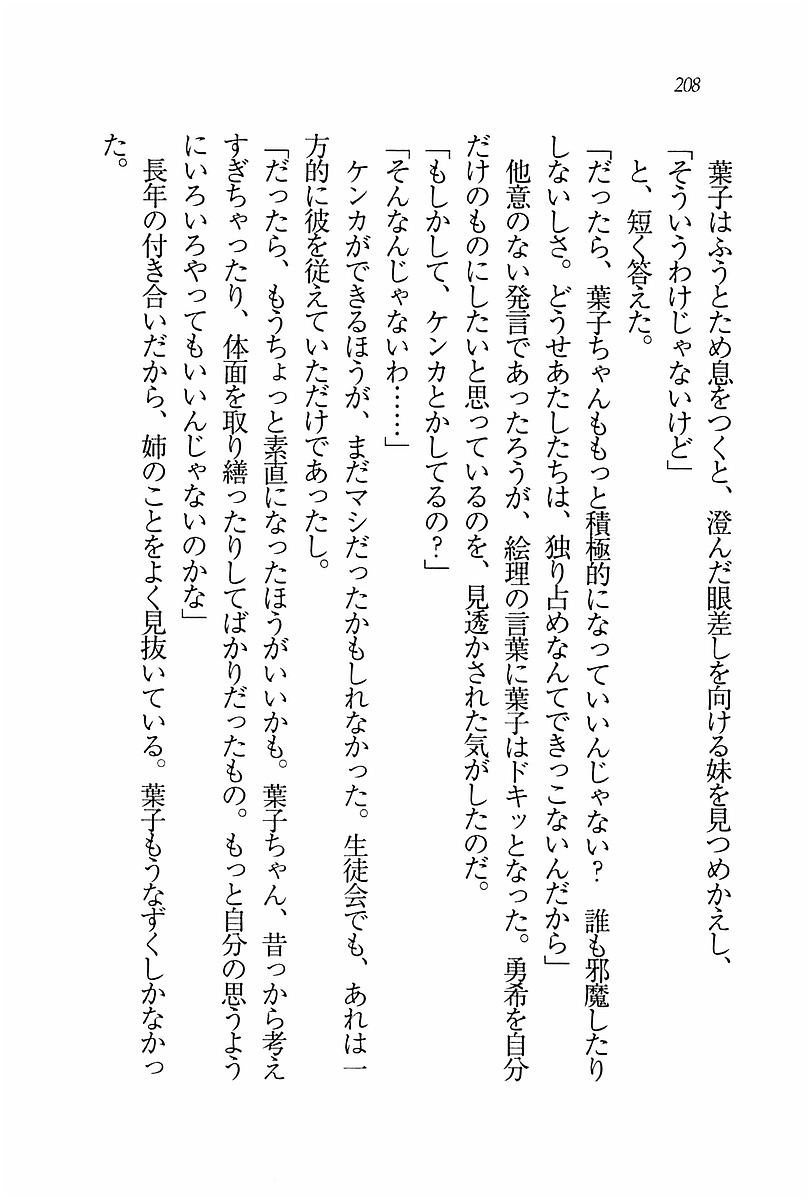 208
　葉子はふうとため息をつくと、澄んだ眼差しを向ける妹を見つめかえし、
「そういうわけじゃないけど」
　と、短く答えた。
「だったら、葉子ちゃんももっと積極的になっていいんじゃない？　誰も邪魔したり
しないしさ。どうせあたしたちは、独り占めなんてできっこないんだから」
　他意のない発言であったろうが、絵理の言葉に葉子はドキッとなった。勇希を自分
だけのものにしたいと思っているのを、見透かされた気がしたのだ。
「もしかして、ケンカとかしてるの？」
「そんなんじゃないわ……」
　ケンカができるほうが、まだマシだったかもしれなかった。生徒会でも、あれは一
方的に彼を従えていただけであったし。
「だったら、もうちょっと素直になったほうがいいかも。葉子ちゃん、昔っから考え
すぎちゃったり、体面を取り繕ったりしてばかりだったもの。もっと自分の思うよう
にいろいろやってもいいんじゃないのかな」
　長年の付き合いだから、姉のことをよく見抜いている。葉子もうなずくしかなかっ
た。